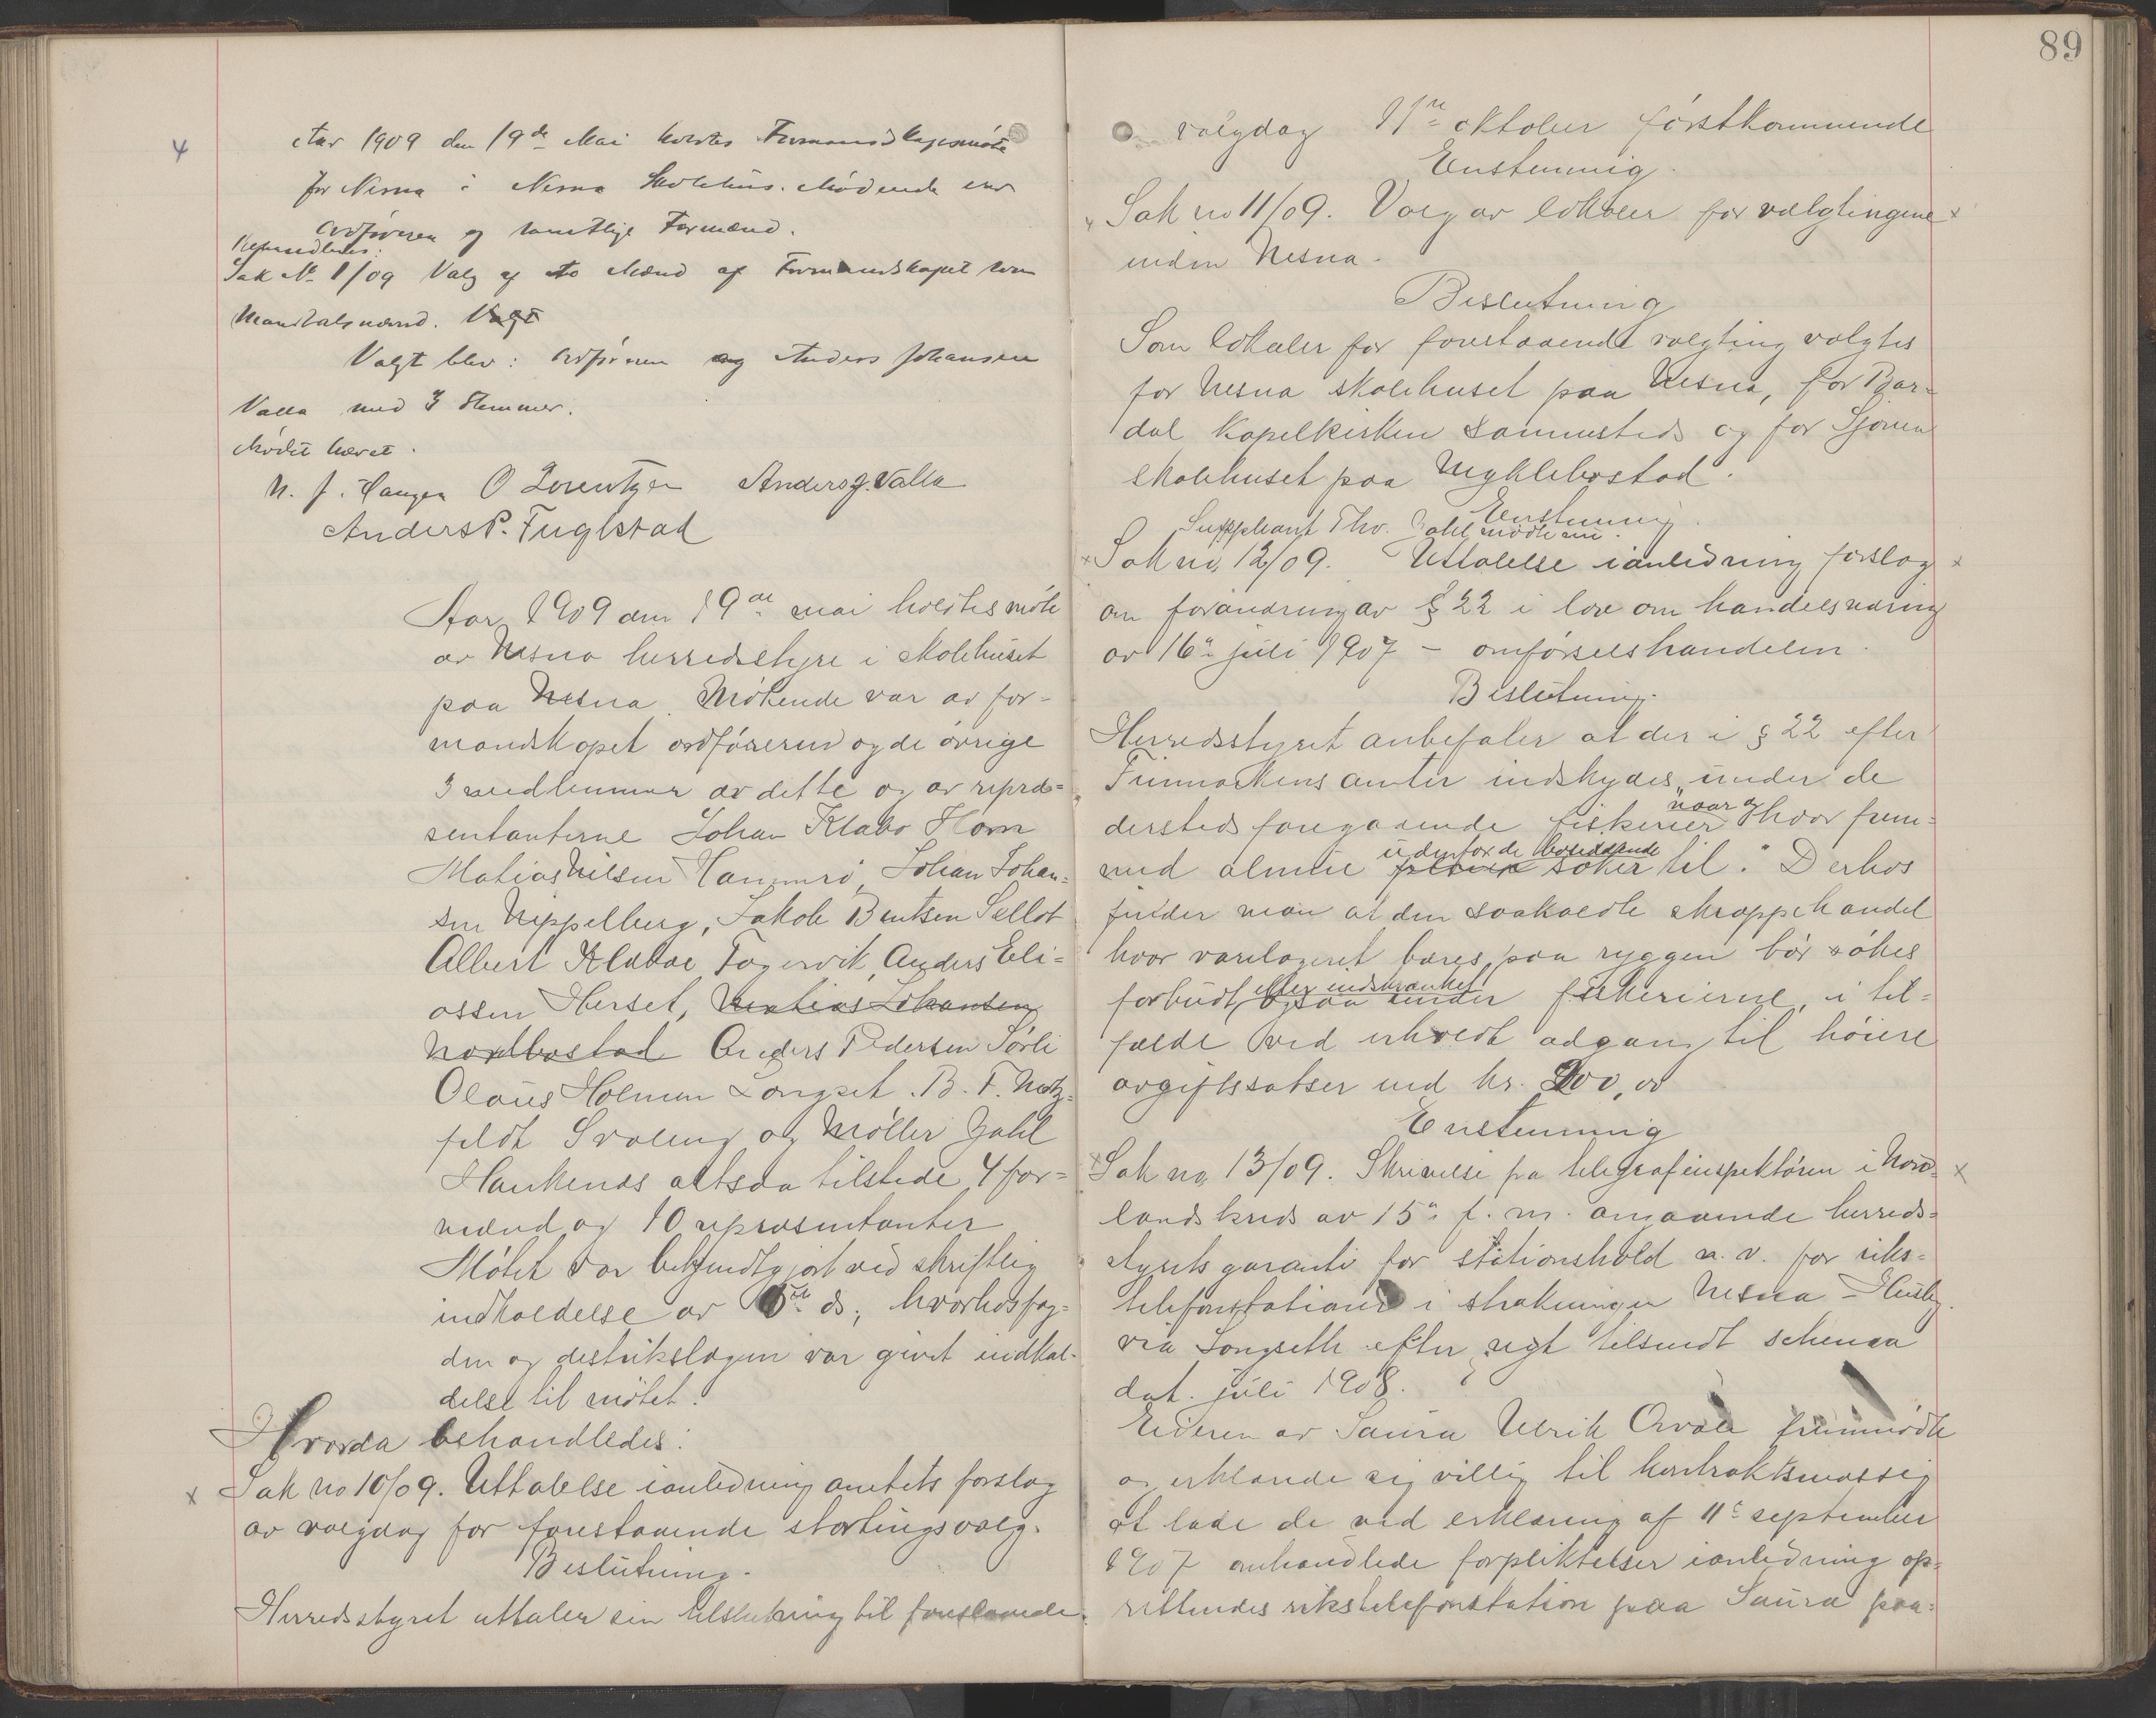 4
Aar 1909 den 19de Mai holdtes Formandskapsmöte
for Nesna i Nesna Skolehus. Mödende var
Ordföreren og samtlige Formænd.
Behandledes:
Sak No 1/09 Valg af to Mænd af Formandskapet som
Mandtalsmænd. Valgt
Valgt blev: Ordföreren og Anders Johansen
Valla med 3 Stemmer.
Mödet hævet.
N. J. Haugen O Lorentzen Anders J. Valla
Anders P. Fuglstad
Aar 1909 den 19de mai holdtes möte
av Nesna herredstyre i skolehuset
paa Nesna. Mötende var av for-
mandskapet ordföreren og de övrige
3 medlemmer av dette og av repræ-
sentanterne Johan Klabo Horn
Matias Nilsen Hammerö, Johan Johan-
sen Nippelberg, Jakob Bentsen Sellöt
Albert Klaboe Fagervik, Anders Eli-
assen Herset, Matias Johansen
Nordbostad Anders Pedersen Sörli
Olaus Holmen Longset. B. F. Motz-
feldt Svaleng og Möller Zahl
Haukenæs altsaa tilstede 4 for-
mænd og 10 repræsentanter
Mötet var bekjendtgjort ved skriftlig
indkaldelse av 6te ds; hvorhos fog-
den og destrikslægen var givet indkal-
delse til mötet.
Hvorda behandledes:
x Sak no 10/09. Uttalelse ianledning amtets forslag
av valgdag for forestaaende stortingsvalg.
Beslutning.
Herredsstyret uttaler sin tilslutning til foreslaaede
89
valgdag 11te oktober förstkommende
Enstemmig.
x Sak no 11/09. Valg av lokaler for valgtingene x
inden Nesna.
Beslutning
Som lokaler for forestaaende valgting valgtes
for Nesna skolehuset paa Nesna, for Bar-
dal Kapelkirken sammesteds og for Sjona
skolehuset paa Myklebostad.
Enstemmig.
Suppleant Thv. Dahl mödte nu.
x Sak no 12/09. Uttalelse ianledning forslag x
om forandring av § 22 i lov om handelsnæring
av 16de juli 1907 - omförselshandelen.
Beslutning.
Herredsstyret anbefaler at der i § 22 efter
Finmarkens amter indskydes „under de
dersteds foregaaende fiskerier naar og hvor frem-
med almue udenfor de bosiddende söker til." Derhos
finder man at den saakaldte skrappehandel
hvor varelageret bæres paa ryggen bör sökes
forbudt eller indskrænket ogsaa under fiskerierne, i til-
fælde ved erhvervet adgang til höiere
avgiftssatser ved kr. 200,00
Enstemmig
x Sak no 13/09. Skrivelse fra telegrafinspektören i Nord- x
lands kreds av 15de f. m. angaaende herreds-
styrets garanti for stationshold m. v. for riks-
telefonstationer i strækningen Nesna - Husby
via Longseth efter tilsendt schema
dat. juli 1908.
Eieren av Saura Ulrik fremmödte
og erklærde sig villig til kontraktsmæssig
at lade de ved erklæring af 11te september
1907 omhandlede forpliktelser ianledning op-
rettendes rikstelefonstation paa Saura paa-